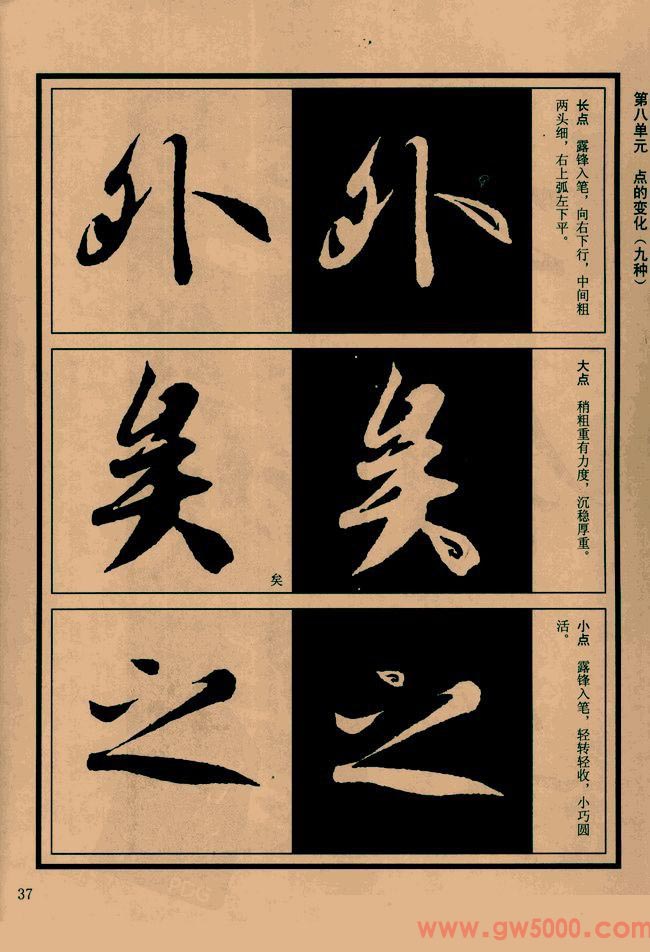 第八单元　点的变化（九种）
长点　露锋入笔，向右下行，中间粗
两头细，右上弧左下平。
外
外
大点　稍粗重有力度，沉稳厚重。
矣
矣
矣
小点　露锋入笔，轻转轻收，小巧圆
活。
之
之
37
www.gw5000.com